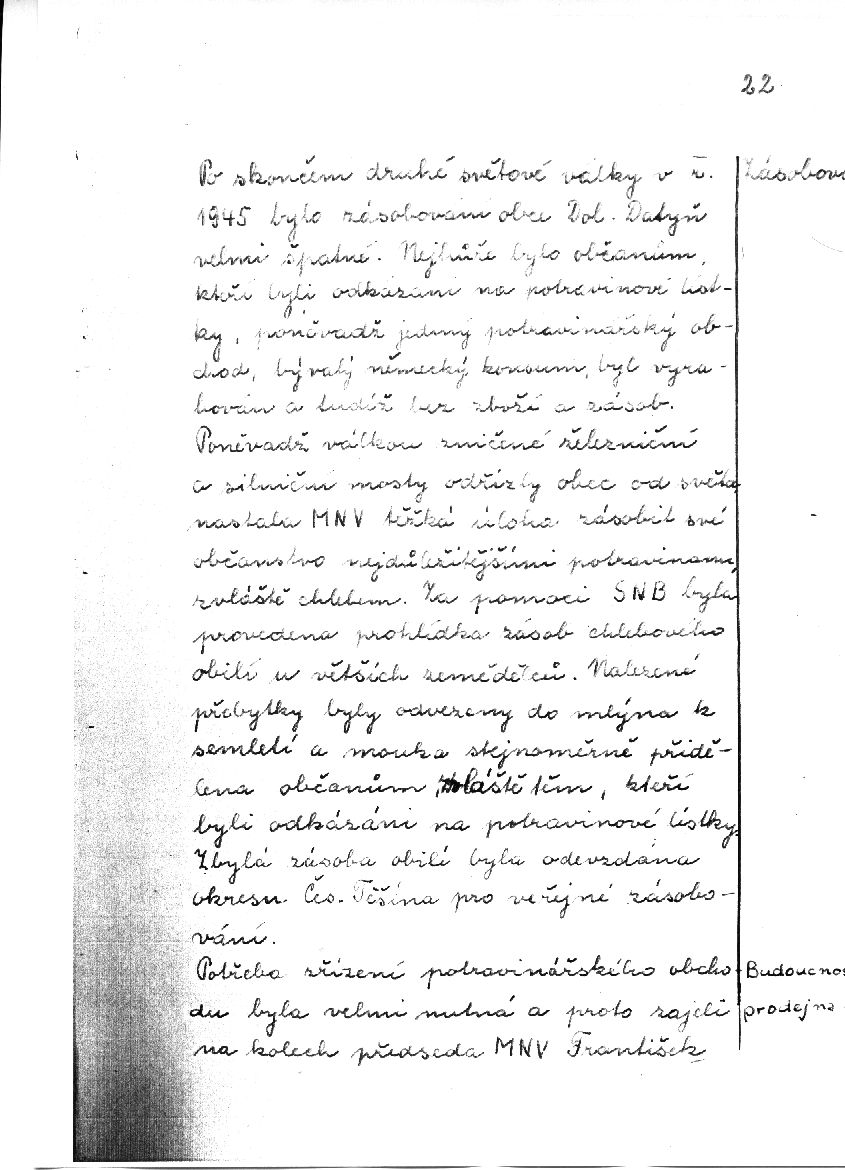 22
Po skončení druhé světové války v r.
1945 bylo zásobování obce Dol. Datyň
velmi špatné. Nejhůře bylo občanům,
kteří byli odkázáni na potravinové líst-
ky, poněvadž jediný potravinářský ob-
chod, bývalý německý konsum, byl vyra-
bován a tudíž bez zboží a zásob.
Poněvadž válkou zničené železniční
a silniční mosty odřízly obec od světa,
nastala MNV těžká úloha zásobit své
občanstvo nejdůležitějšími potravinami,
zvláště chlebem. Za pomoci SNB byla
provedena prohlídka zásob chlebového
obilí u větších zemědělců. Nalezené
přebytky byly odvezeny do mlýna k
semletí a mouka stejnoměrně přidě-
lena občanům, zvláště těm, kteří
byli odkázáni na potravinové lístky.
Zbylá zásoba obilí byla odevzdána
okresu Čes. Těšína pro veřejné zásobo-
vání.
Potřeba zřízení potravinářského obcho-
du byla velmi nutná a proto zajeli
na kolech předseda MNV František
Zásobová
Budoucnos
prodejna